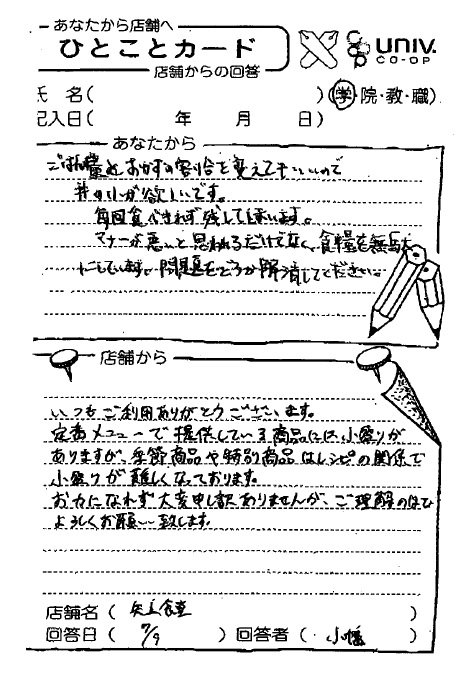 あなたから店舗へ
ひとことカード
店舗からの回答
UNIV.
CO-OP
氏 名( )(学・院・教・職)
記入日( 年 月 日)
あなたから
ごはん量とおかずの割合を変えてもいいので
丼の小が欲しいです。
毎回食べきれず残してしまいます。
マナーが悪いと思われるだけでなく、食糧を無駄
にしています。問題をどうか解消してください。
店舗から
いつもご利用ありがとうございます。
定番メニューで提供している商品には小盛りが
ありますが、季節商品や特別商品はレシピの関係で
小盛りが難しくなっております。
お力になれず大変申し訳ありませんが、ご理解のほど
よろしくお願い致します。
店舗名( 食堂 )
回答日( 7/9 )回答者( 小幡 )